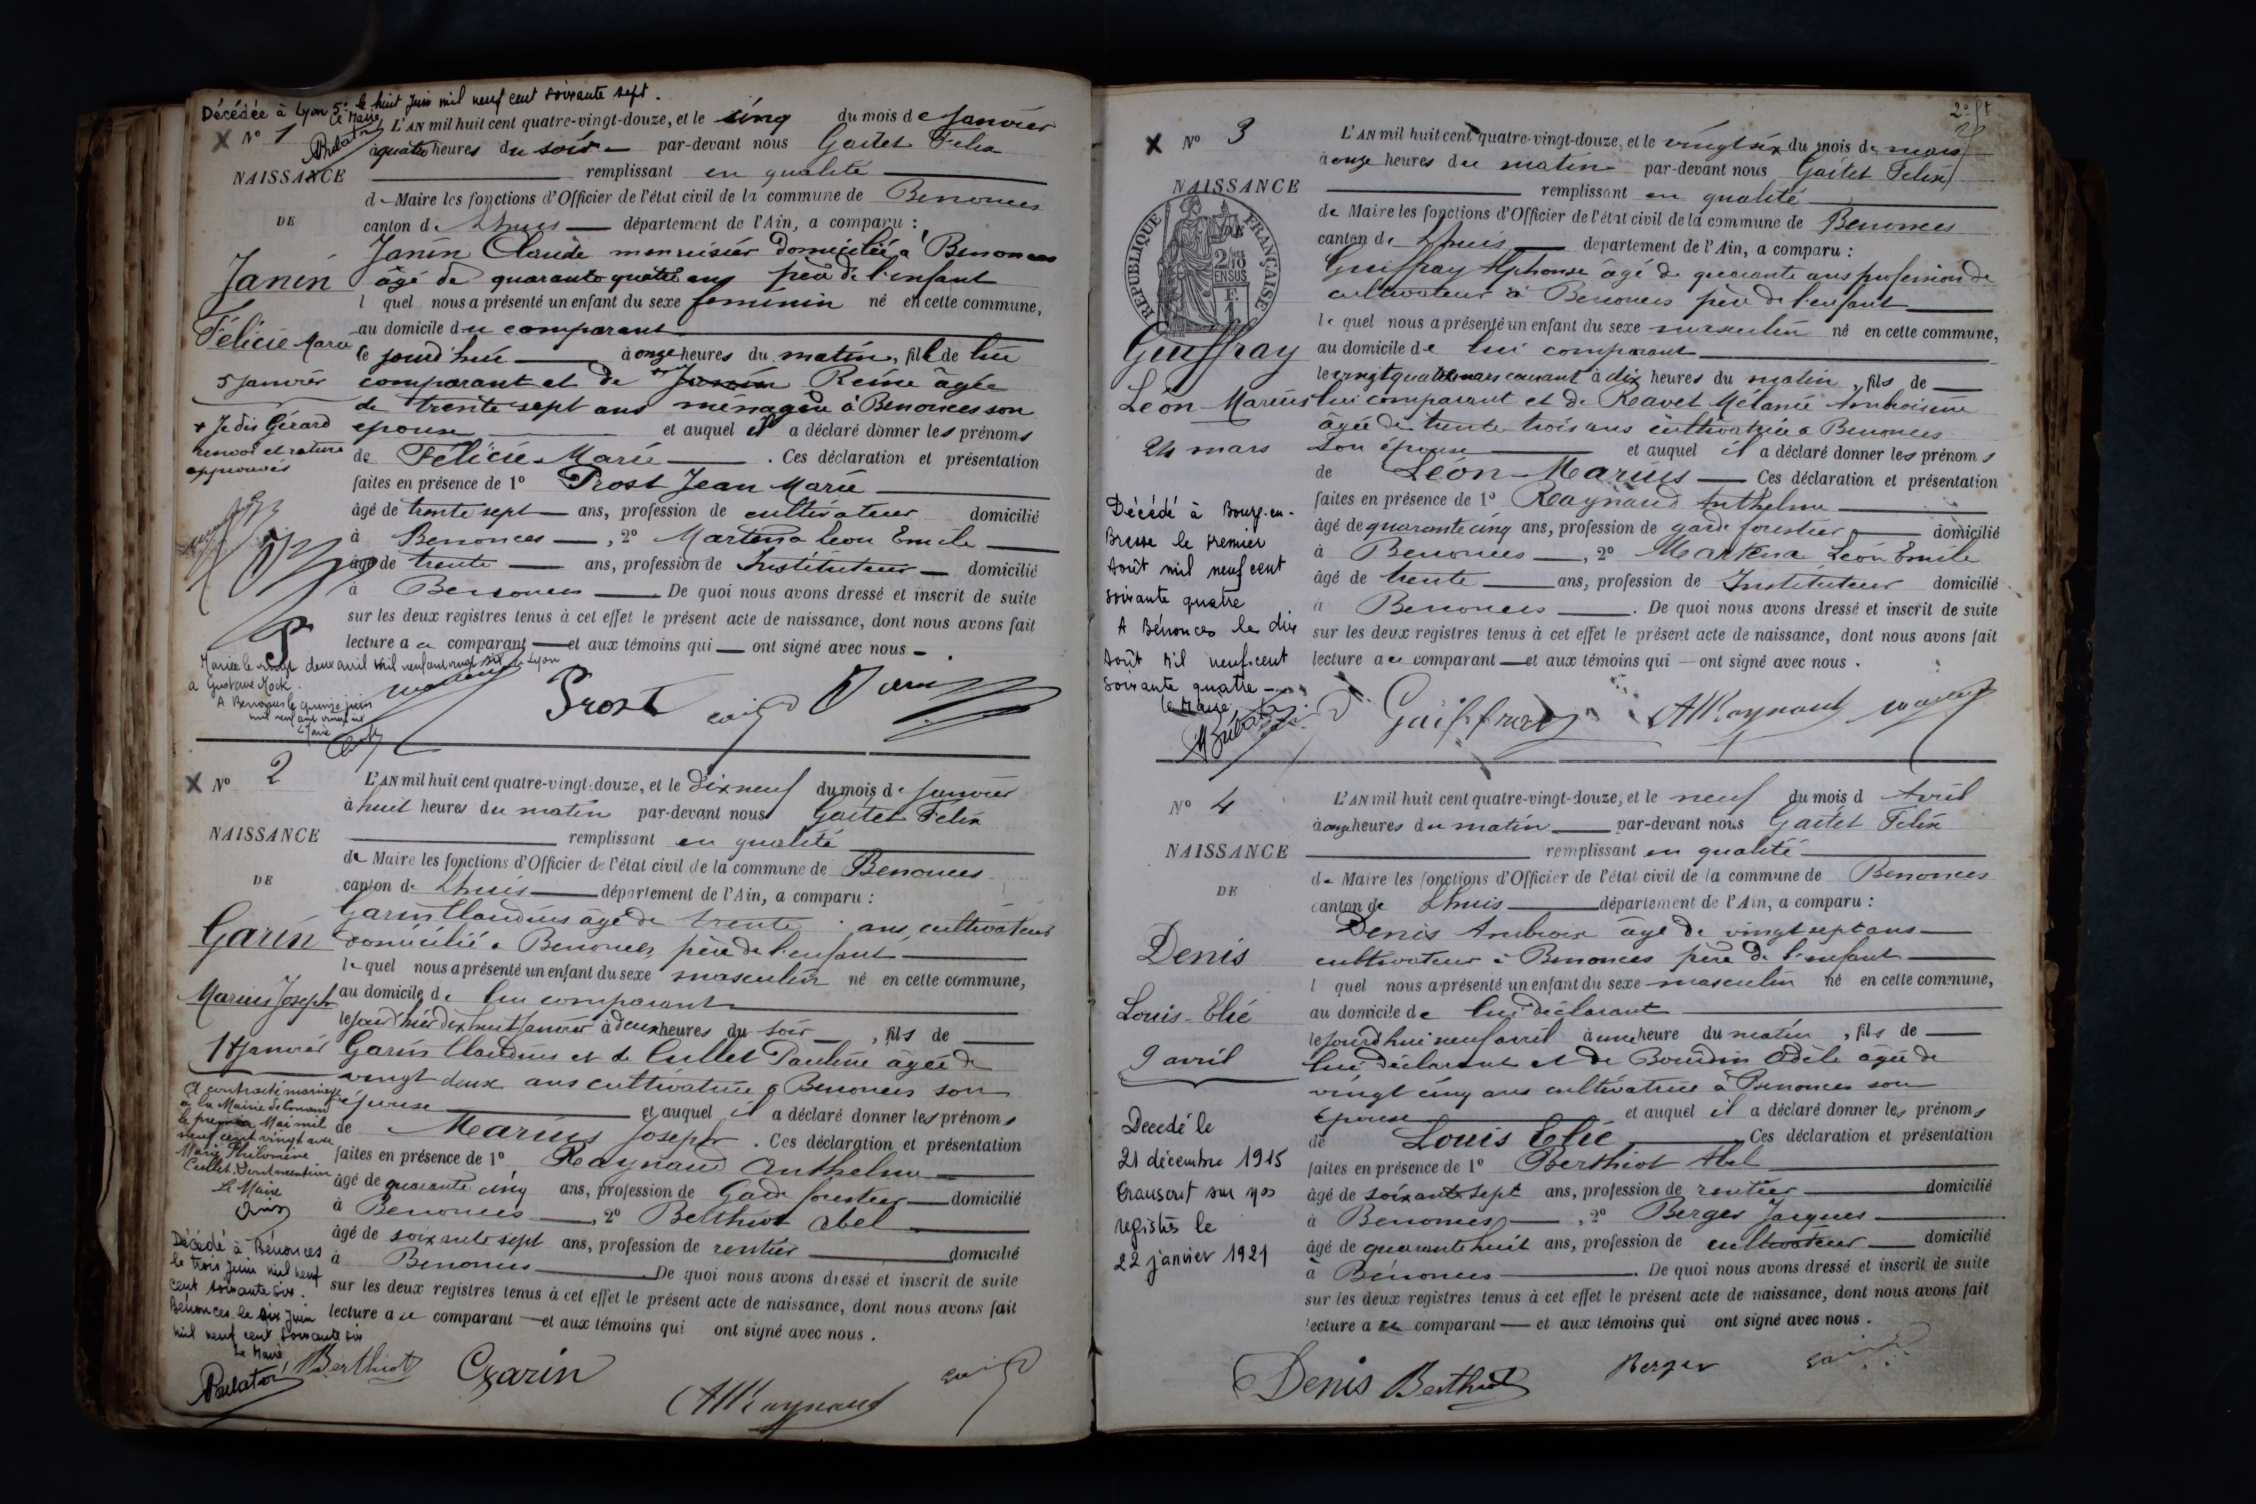 Décédée à Lyon 5e le huit Juin mil neuf cent soixante sept.
Le Maire
N° 1
L'AN mil huit cent quatre-vingt-douze, et le cinq du mois de Janvier
à quatre heures du soir par-devant nous Gaitet Félix
NAISSANCE
remplissant en qualité
de Maire les fonctions d'Officier de l'état civil de la commune de Benonces
DE
canton d Lhuis département de l'Ain, a comparu :
Janin Claude menuisier domicilié à Benonces
Janin
âgé de quarante quatre ans père de l'enfant
l quel nous a présenté un enfant du sexe feminin né en cette commune,
Félicie Marie
au domicile du comparant
le jourd'hui à onze heures du matin, fille de lui
5 Janvier
comparant et de Janin Reine âgée
de trente sept ans ménagère à Benonces son
+ Je dis Gérard
renvoi et rature
approuvés
epouse et auquel il a déclaré donner les prénoms
de Félicie Marie . Ces déclaration et présentation
faites en présence de 1° Prost Jean Marie
âgé de trente sept ans, profession de cultivateur domicilié
à Benonces , 2° Martena Leon Emile
âgé de trente ans, profession de Instituteur domicilié
à Benonces De quoi nous avons dressé et inscrit de suite
sur les deux registres tenus à cet effet le présent acte de naissance, dont nous avons fait
lecture a ce comparant et aux témoins qui ont signé avec nous
Mariée le vingt deux avril mil neuf cent vingt six à Lyon
à Gustave Mock.
A Benonces le quinze juin
Prost
N° 2
L'AN mil huit cent quatre-vingt-douze, et le dix neuf du mois de Janvier
à huit heures du matin par-devant nous Gaitet Félix
NAISSANCE
remplissant en qualité
de Maire les fonctions d'Officier de l'état civil de la commune de Benonces
DE
canton de Lhuis département de l'Ain, a comparu :
Garin Claudius âgé de trente ans, cultivateur
Garin
domicilié à Benonces, père de l'enfant
le quel nous a présenté un enfant du sexe masculin né en cette commune,
Marius Joseph
au domicile de lui comparant
le jourd'hier dix huit Janvier à deux heures du soir , fils de
18 Janvier
Garin Claudius et de Cullet Pauline âgée de
vingt deux ans cultivatrice à Benonces son
épouse et auquel il a déclaré donner les prénoms
de Marius Joseph . Ces déclaration et présentation
faites en présence de 1° Raynaud Anthelme
âgé de quarante cinq ans, profession de Garde forestier domicilié
à Benonces , 2° Berthiot Abel
âgé de soixante sept ans, profession de rentier domicilié
à Benonces De quoi nous avons dressé et inscrit de suite
sur les deux registres tenus à cet effet le présent acte de naissance, dont nous avons fait
lecture a ce comparant et aux témoins qui ont signé avec nous .
A contracté mariage
à la Mairie de Conand
le premier Mai mil
neuf cent vingt avec
Marie Philomène
Cullet. Dont mention
Le Maire
Décédé à Bénonces
le trois Juin mil neuf
cent soixante six.
Bénonces le six Juin
mil neuf cent soixante six
Le Maire
Berthiot Garin
A Raynaud
N° 3
L'AN mil huit cent quatre-vingt-douze, et le vingt six du mois de mars
à onze heures du matin par-devant nous Gaitet Félix
NAISSANCE
remplissant en qualité
de Maire les fonctions d'Officier de l'état civil de la commune de Benonces
RÉPUBLIQUE FRANÇAISE
canton de Lhuis département de l'Ain, a comparu :
Guiffray Alphonse âgé de quarante ans profession de
cultivateur à Benonces père de l'enfant
le quel nous a présenté un enfant du sexe masculin né en cette commune,
Guiffray
au domicile de lui comparant
le vingt quatre mars courant à dix heures du matin, fils de
Léon Marius
lui comparant et de Ravet Mélanie Ambroisine
âgée de trente trois ans cultivatrice à Benonces
24 mars
son épouse et auquel il a déclaré donner les prénoms
de Léon Marius Ces déclaration et présentation
faites en présence de 1° Raynaud Anthelme
âgé de quarante cinq ans, profession de garde forestier domicilié
à Benonces , 2° Martena Léon Emile
âgé de trente ans, profession de Instituteur domicilié
à Benonces . De quoi nous avons dressé et inscrit de suite
sur les deux registres tenus à cet effet le présent acte de naissance, dont nous avons fait
lecture a ce comparant et aux témoins qui ont signé avec nous .
Décédé à Bourg-en-
Bresse le premier
Août mil neuf cent
soixante quatre
A Bénonces le dix
Août mil neuf cent
soixante quatre
Le Maire
Guiffray A Raynaud
N° 4
L'AN mil huit cent quatre-vingt-douze, et le neuf du mois d Avril
à onze heures du matin par-devant nous Gaitet Félix
NAISSANCE
remplissant en qualité
de Maire les fonctions d'Officier de l'état civil de la commune de Benonces
DE
canton de Lhuis département de l'Ain, a comparu :
Denis Ambroise âgé de vingt sept ans
Denis
cultivateur à Benonces père de l'enfant
l quel nous a présenté un enfant du sexe masculin né en cette commune,
Louis-Elie
au domicile de lui déclarant
le jourd'hui neuf avril à une heure du matin , fils de
9 avril
lui déclarant et de Bourdin Adèle âgée de
vingt cinq ans cultivatrice à Benonces son
épouse et auquel il a déclaré donner les prénoms
de Louis Elie Ces déclaration et présentation
faites en présence de 1° Berthiot Abel
âgé de soixante sept ans, profession de rentier domicilié
à Benonces , 2° Berger Jacques
âgé de quarante huit ans, profession de cultivateur domicilié
à Benonces . De quoi nous avons dressé et inscrit de suite
sur les deux registres tenus à cet effet le présent acte de naissance, dont nous avons fait
lecture a ce comparant et aux témoins qui ont signé avec nous .
Decedé le
21 décembre 1915
transcrit sur nos
registres le
22 janvier 1921
Denis Berthiot Berger